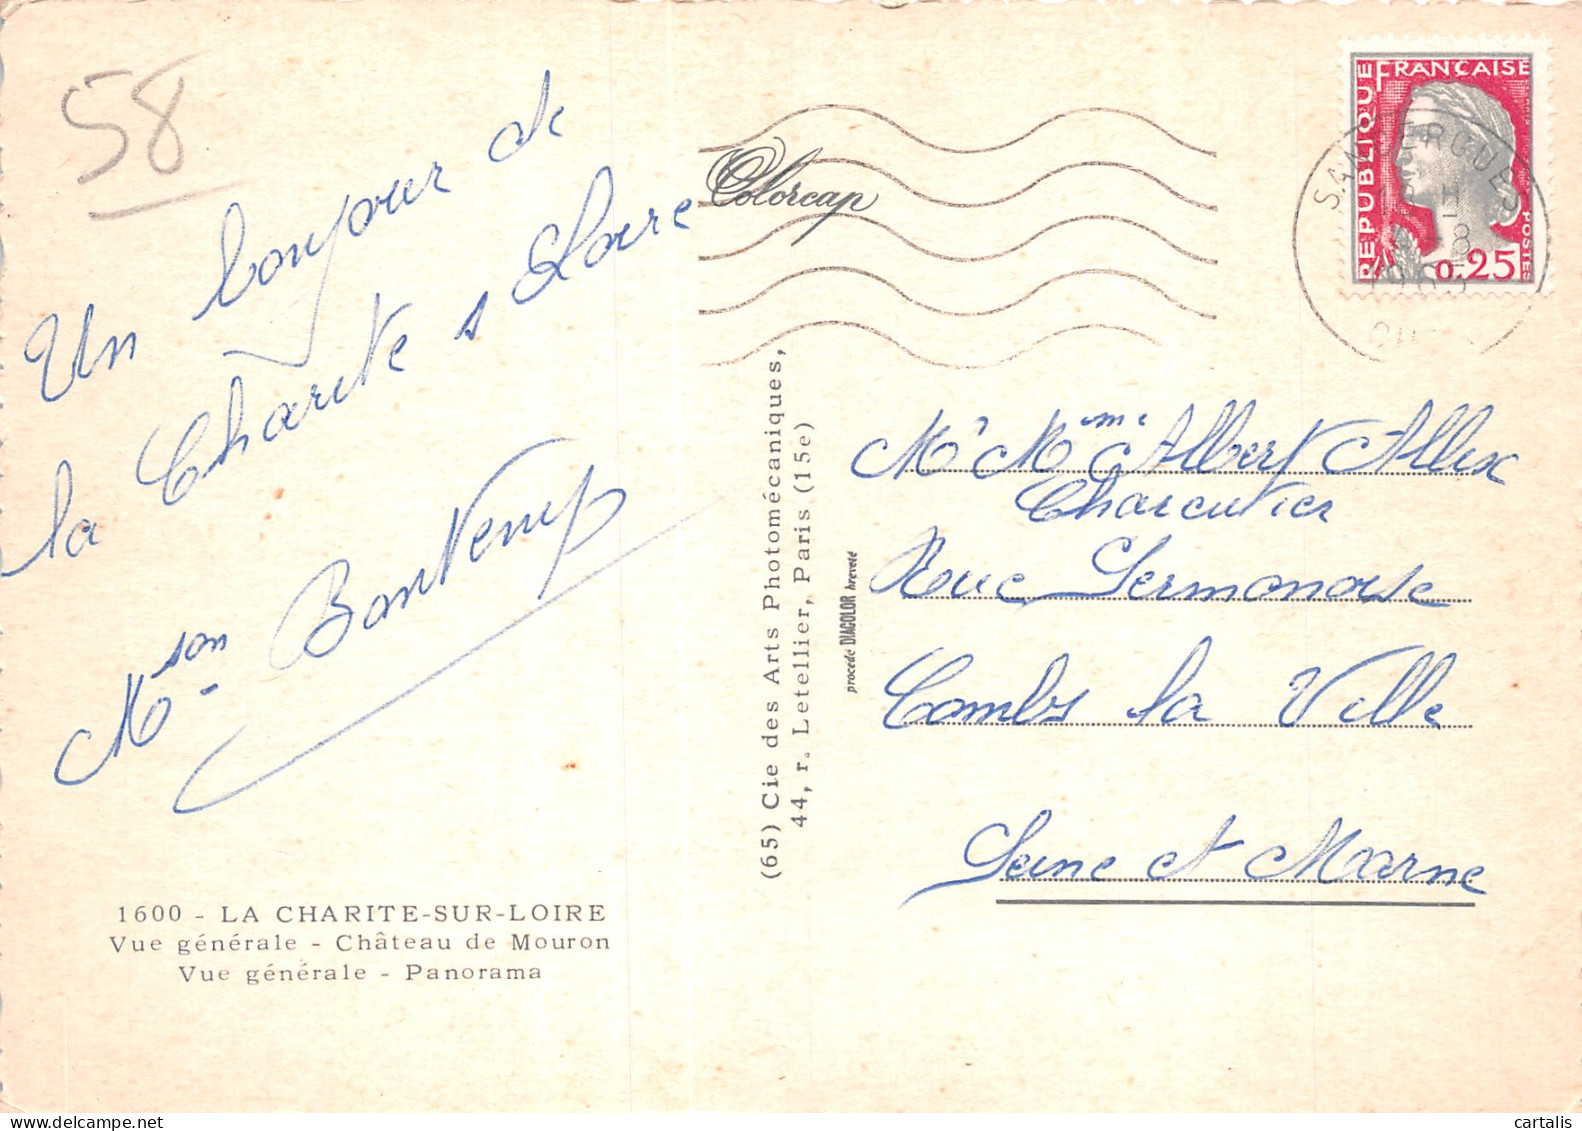 58
Un bonjour de
la Charité s Loire
M^son Bontemp
1600 - LA CHARITE-SUR-LOIRE
Vue générale - Château de Mouron
Vue générale - Panorama
Colorcap
(65) Cie des Arts Photomécaniques,
44, r. Letellier, Paris (15e)
procédé DIACOLOR breveté
REPUBLIQUE FRANÇAISE
POSTES
0,25
SANCERGUES
CHER
M^r M^me Albert Allix
Charcutier
Rue Sermonoise
Combs la Ville
Seine et Marne
cartalis